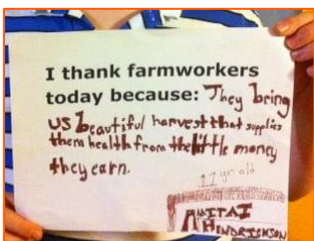 I thank farmworkers
today because: They bring
us beautiful harvest that supplies
them health from the little money
they earn.
11 yr old
AMITAI
HINDRICKSON